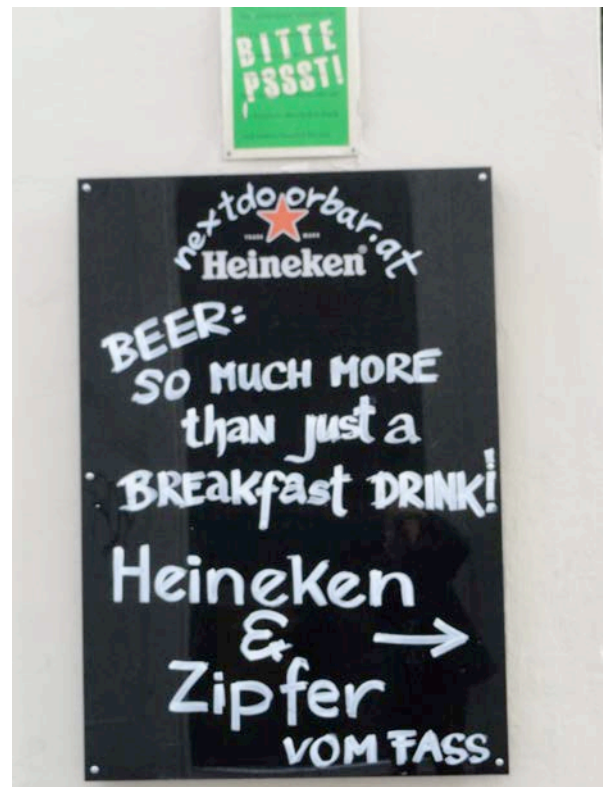 BITTE
PSSST!
nextdoorbar.at
TRADE MARK
Heineken®
BEER:
SO MUCH MORE
than just a
BREakfast DRINK!
Heineken
& →
Zipfer
VOM FASS.